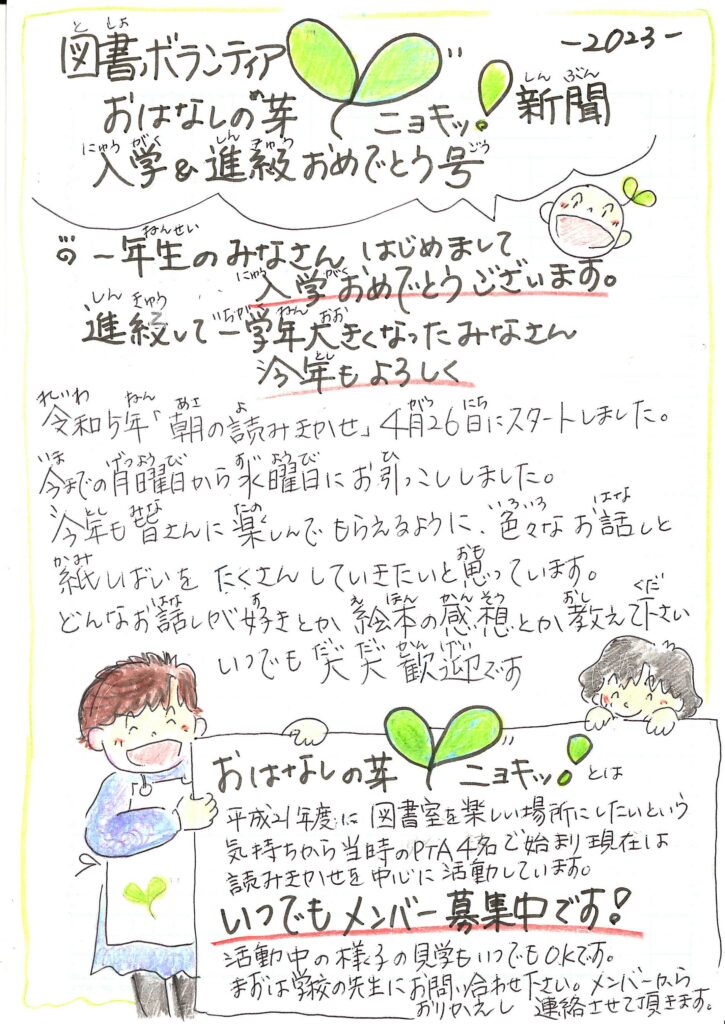 図書ボランティア
-2023-
おはなしの芽 ニョキッ! 新聞
入学&進級おめでとう号
一年生のみなさん はじめまして
入学おめでとうございます。
進級して一学年大きくなったみなさん
今年もよろしく
令和5年「朝の読みきかせ」4月26日にスタートしました。
今までの月曜日から水曜日にお引っこししました。
今年も皆さんに楽しんでもらえるように、色々なお話しと
紙しばいをたくさんしていきたいと思っています。
どんなお話しが好きとか 絵本の感想とか教えて下さい
いつでも大大歓迎です
おはなしの芽 ニョキッ! とは
平成21年度に図書室を楽しい場所にしたいという
気持ちから当時のPTA4名で始まり現在は
読みきかせを中心に活動しています。
いつでもメンバー募集中です!
活動中の様子の見学もいつでもOKです。
まずは学校の先生にお問い合わせ下さい。メンバーから
おりかえし 連絡させて頂きます。